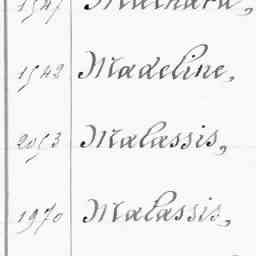 1547 Mathard,
1542 Madeline,
2053 Malassis,
1970 Malassis,